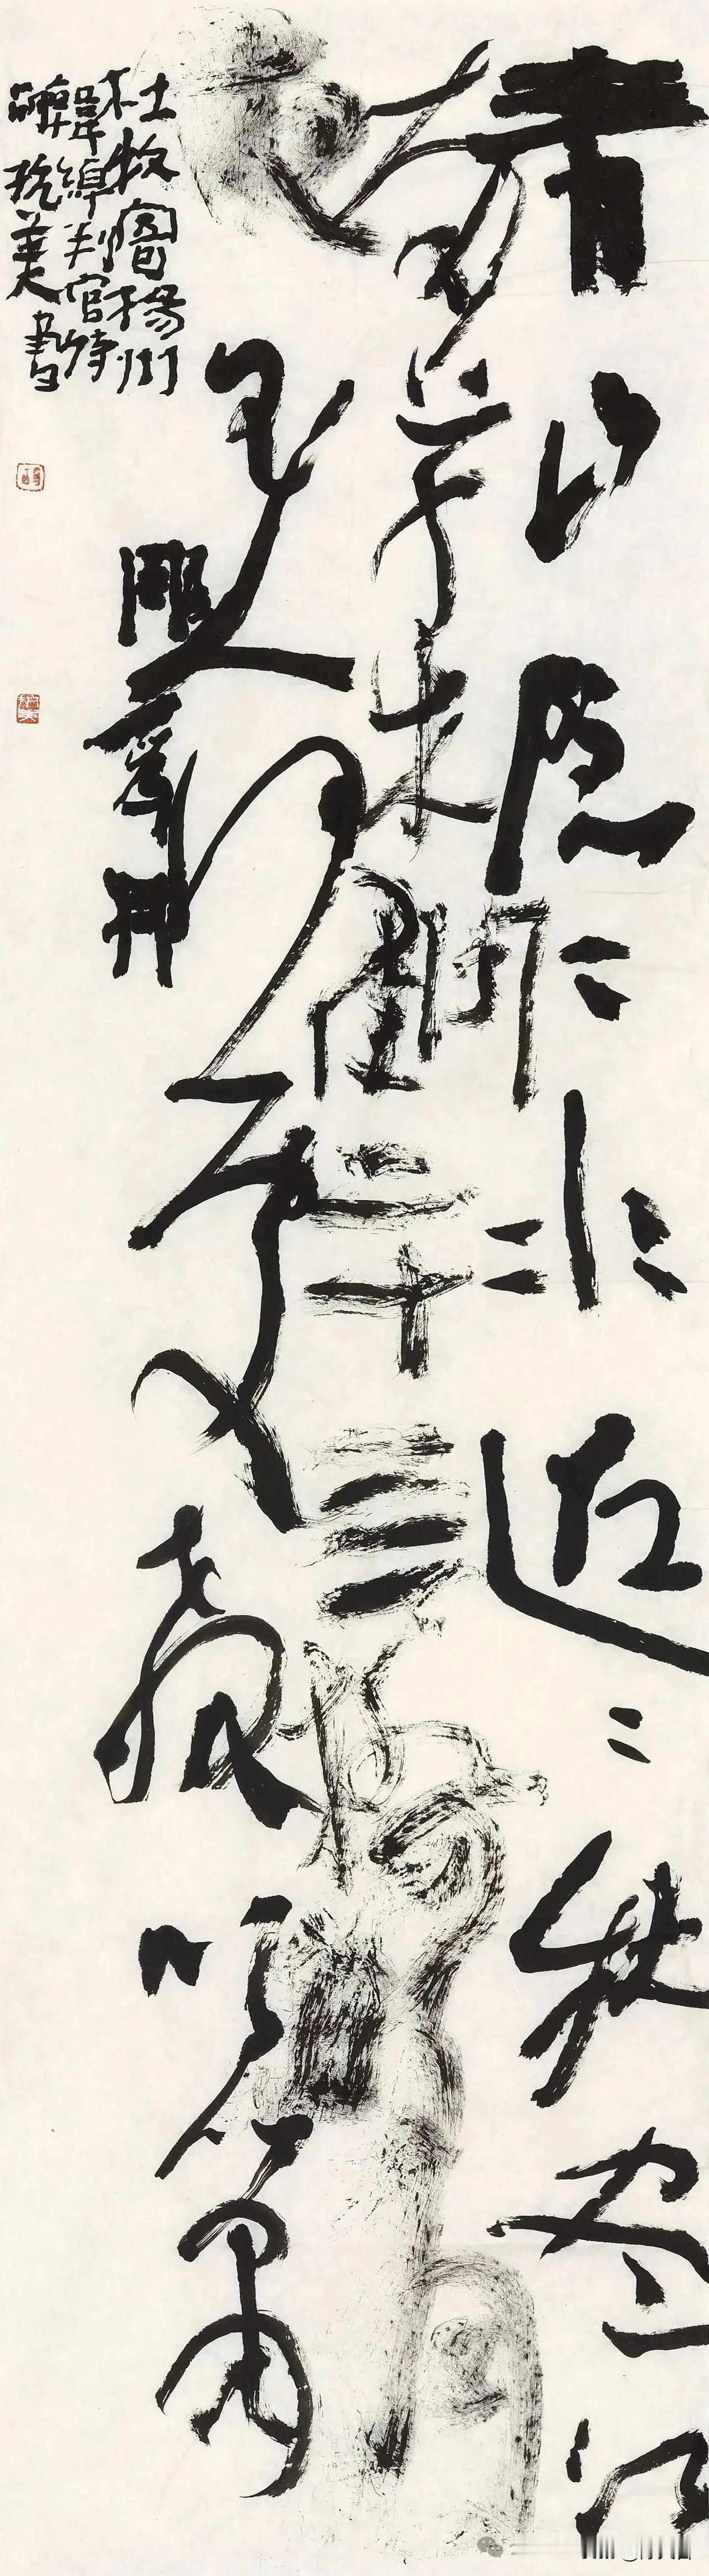 青山隱〻水迢〻秋盡江
南草未凋二十三橋明月
夜玉人何處教吹簫
杜牧寄揚州
韓綽判官詩
抗美書